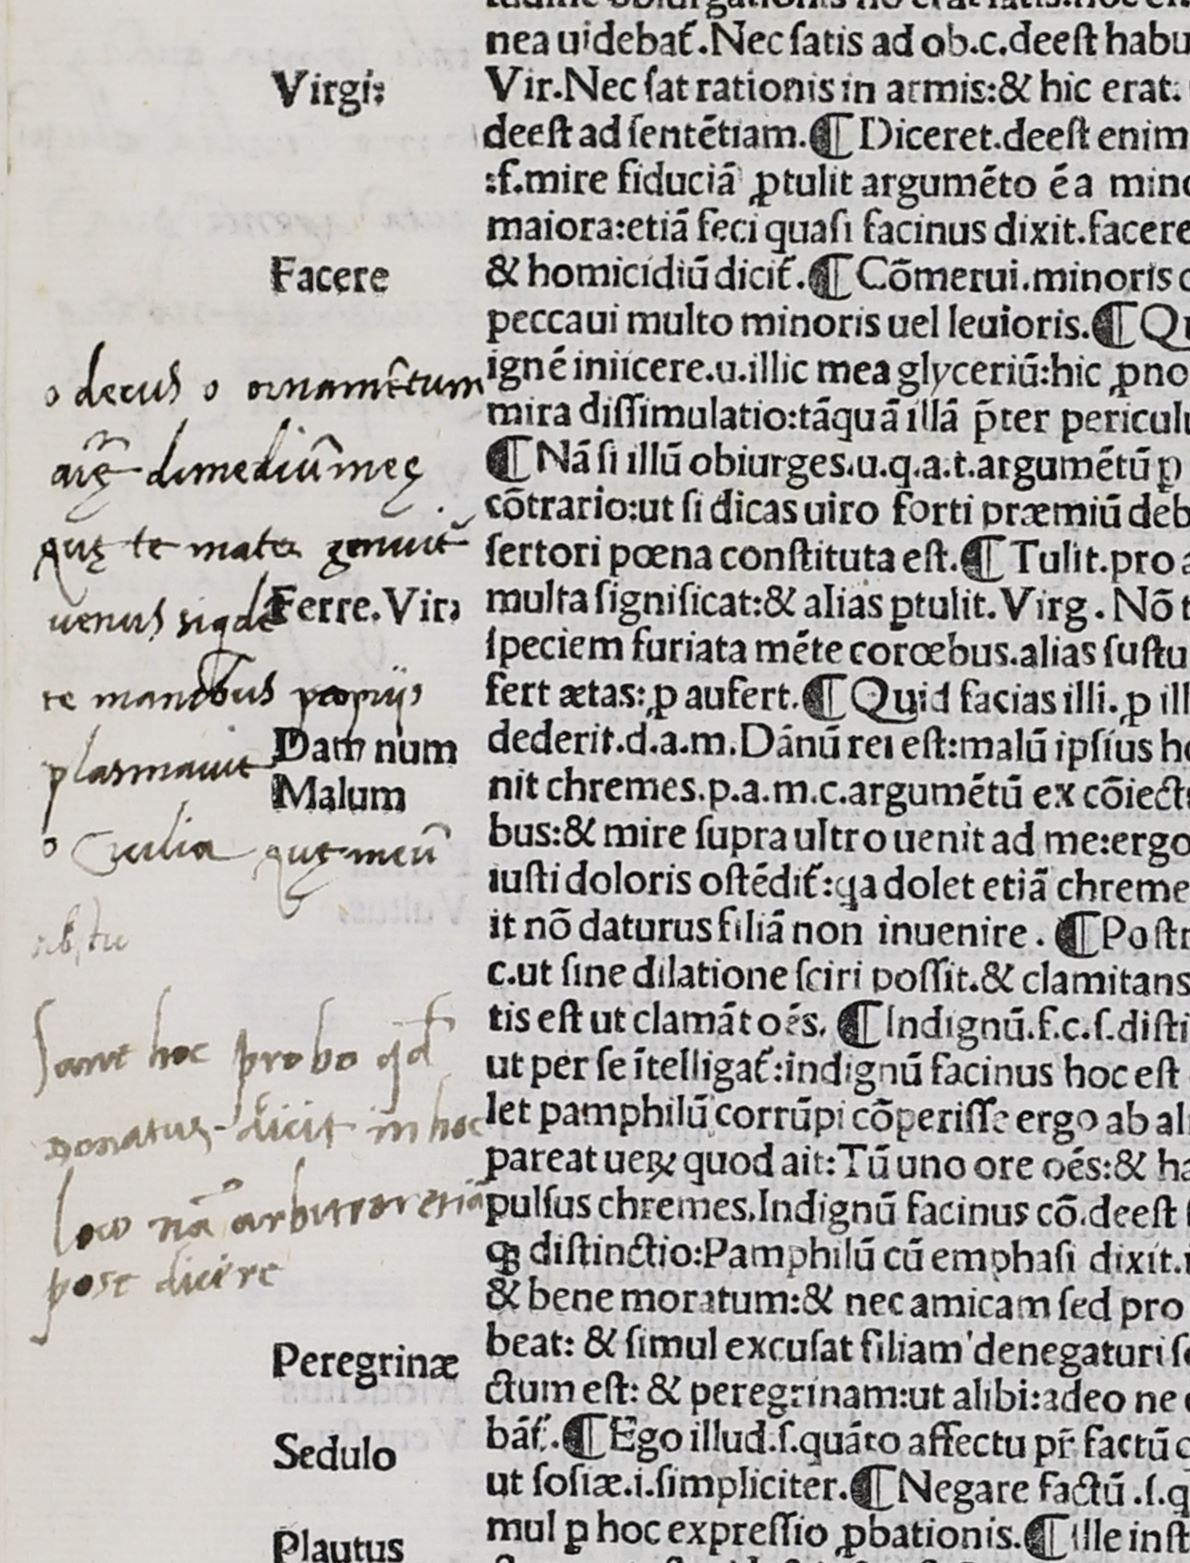 nea uidebat᷑.Nec ſatis ad ob.c.deeſt habu
Virgi:
Vir.Nec ſat rationis in armis:& hic erat.
deeſt ad ſentētiam.¶ Diceret.deeſt enim
:ſ.mire fiduciā ꝓtulit argumēto ē a mino
maiora:etiā feci quaſi facinus dixit.facere
Facere
& homicidiū dicit᷑.¶ Cōmerui.minoris
peccaui multo minoris uel leuioris.¶ Qu
o decus o ornamētum
ignē iniicere.u.illic mea glyceriū:hic ꝓno
mira diſſimulatio:tāquā illā p̄ter periculu
dimediū meę
¶ Nā ſi illū obiurges.u.q.a.t.argumētū ꝑ
cōtrario:ut ſi dicas uiro forti præmiū deb
quę te mater genuit
ſertori pœna conſtituta eſt.¶ Tulit.pro a
uenus siqdē
Ferre.Vir.
multa ſignificat:& alias ꝓtulit.Virg.Nō t
ſpeciem furiata mēte corœbus.alias ſuſtu
te manibus propriis
fert ætas:ꝓ aufert.¶ Quid facias illi.ꝓ ill
plasmauit
Damnum
dederit.d.a.m.Dānū rei eſt:malū ipſius ho
Malum
nit chremes.p.a.m.c.argumētū ex cōiectu
o quę meū
bus:& mire ſupra ultro uenit ad me:ergo
iuſti doloris oſtēdit᷑:qa dolet etiā chreme
it nō daturus filiā non inuenire.¶ Poſtr
c.ut ſine dilatione ſciri poſſit.& clamitans
tis eſt ut clamāt oēs.¶ Indignū.f.c.ſ.diſti
hoc probo qd
ut per ſe ītelligat᷑:indignū facinus hoc eſt
Donatus dicit in hoc
let pamphilū corrūpi cōperiſſe ergo ab ali
pareat ueꝝ quod ait:Tū uno ore oēs:& ha
loco nā arbitror etiā
pulſus chremes.Indignū facinus cō.deeſt
posse dicere
diſtinctio:Pamphilū cū emphaſi dixit.
& bene moratum:& nec amicam ſed pro
Peregrinæ
beat: & ſimul excuſat filiam denegaturi ſe
ctum eſt: & peregrinam:ut alibi:adeo ne
Sedulo
bāt᷑.¶ Ego illud.ſ.quāto affectu pr̄ factū
ut ſoſiæ.i.ſimpliciter.¶ Negare factū.ſ.q
Plautus
mul ꝑ hoc expreſſio ꝓbationis.¶ Ille inſt